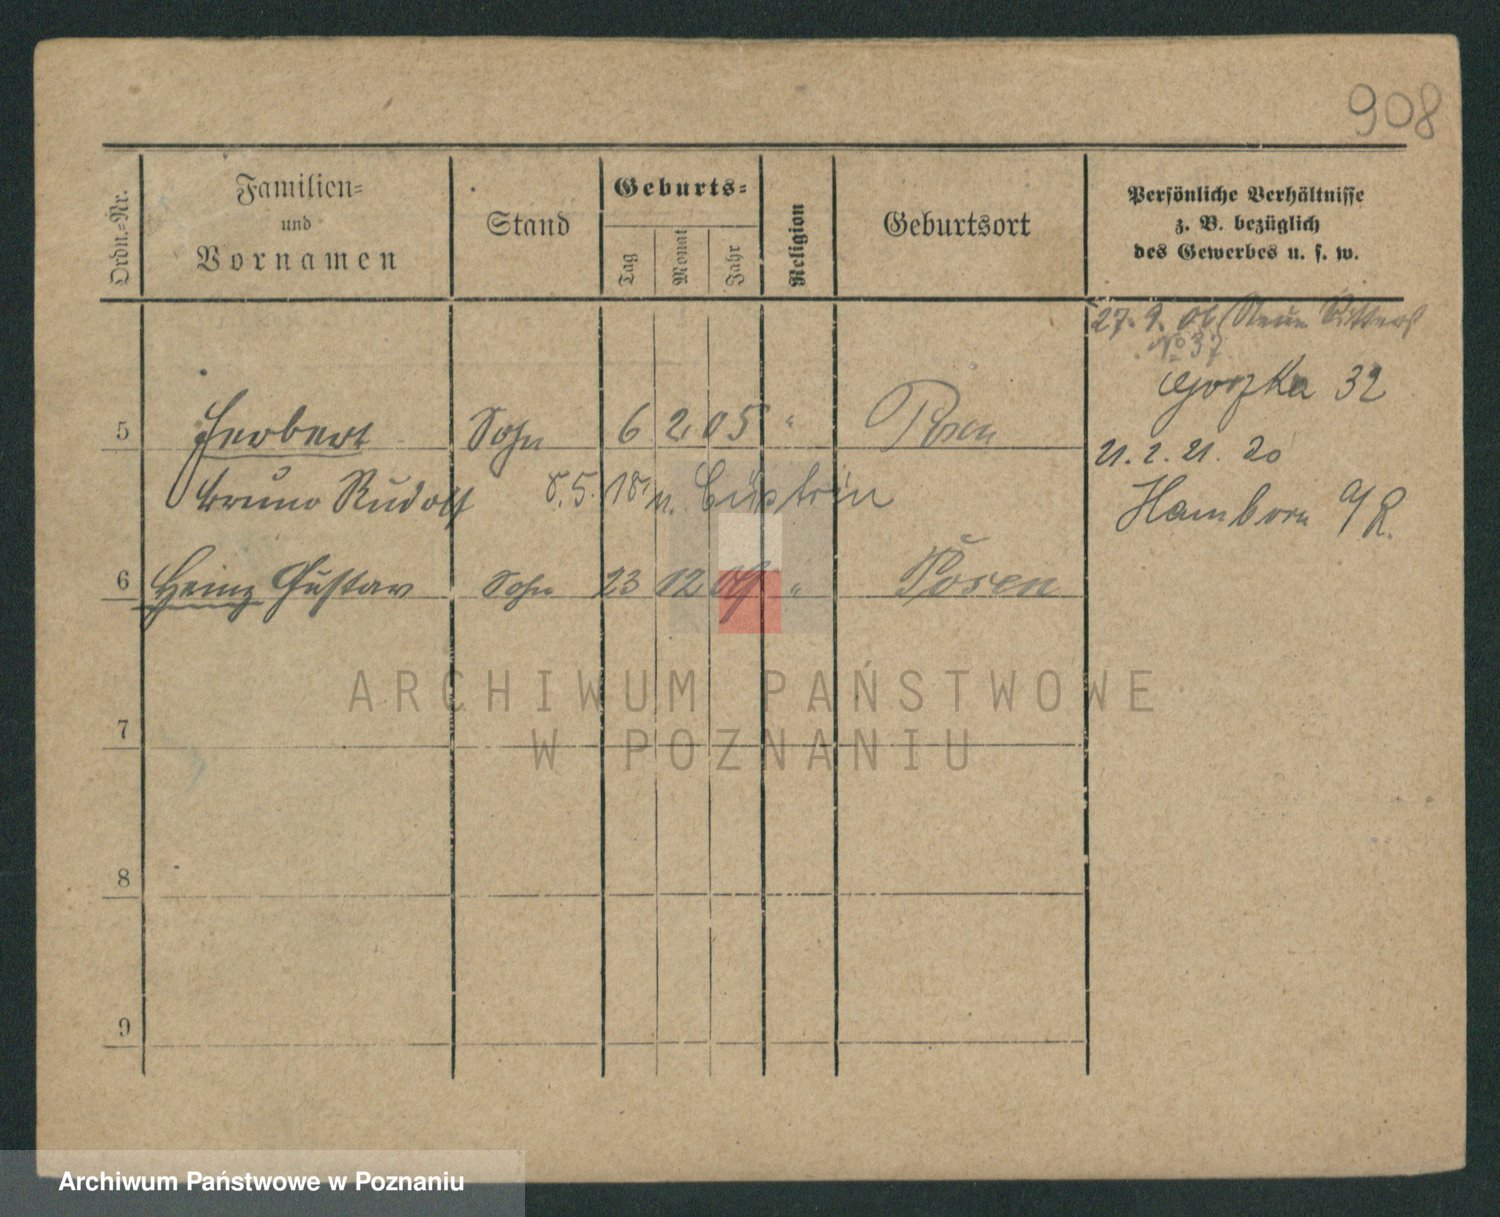 908
Ordn.-Nr.
Familien-
und
Vornamen
Stand
Geburts-
Tag
Monat
Jahr
Religion
Geburtsort
Persönliche Verhältnisse
z. B. bezüglich
des Gewerbes u. s. w.
27. 9. 06 Neue
No 37
32
5 Herbert Sohn 6 2 05 " Posen
21. 2. 21. 20
Bruno Rudolf 8.5. 18 n. Cüstrin
Hamborn a/R.
6 Heinz Gustav Sohn 23 12 09 " Posen
7
8
9
ARCHIWUM PAŃSTWOWE
W POZNANIU
Archiwum Państwowe w Poznaniu